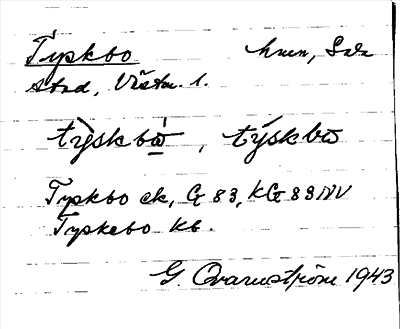 Typkbo hmn, Sala
stad, Västm. l.
týskbò, týskbo
Typkbo ek, G 83, KG 83NV
Typkebo kb.
G. Qvarnström 1943